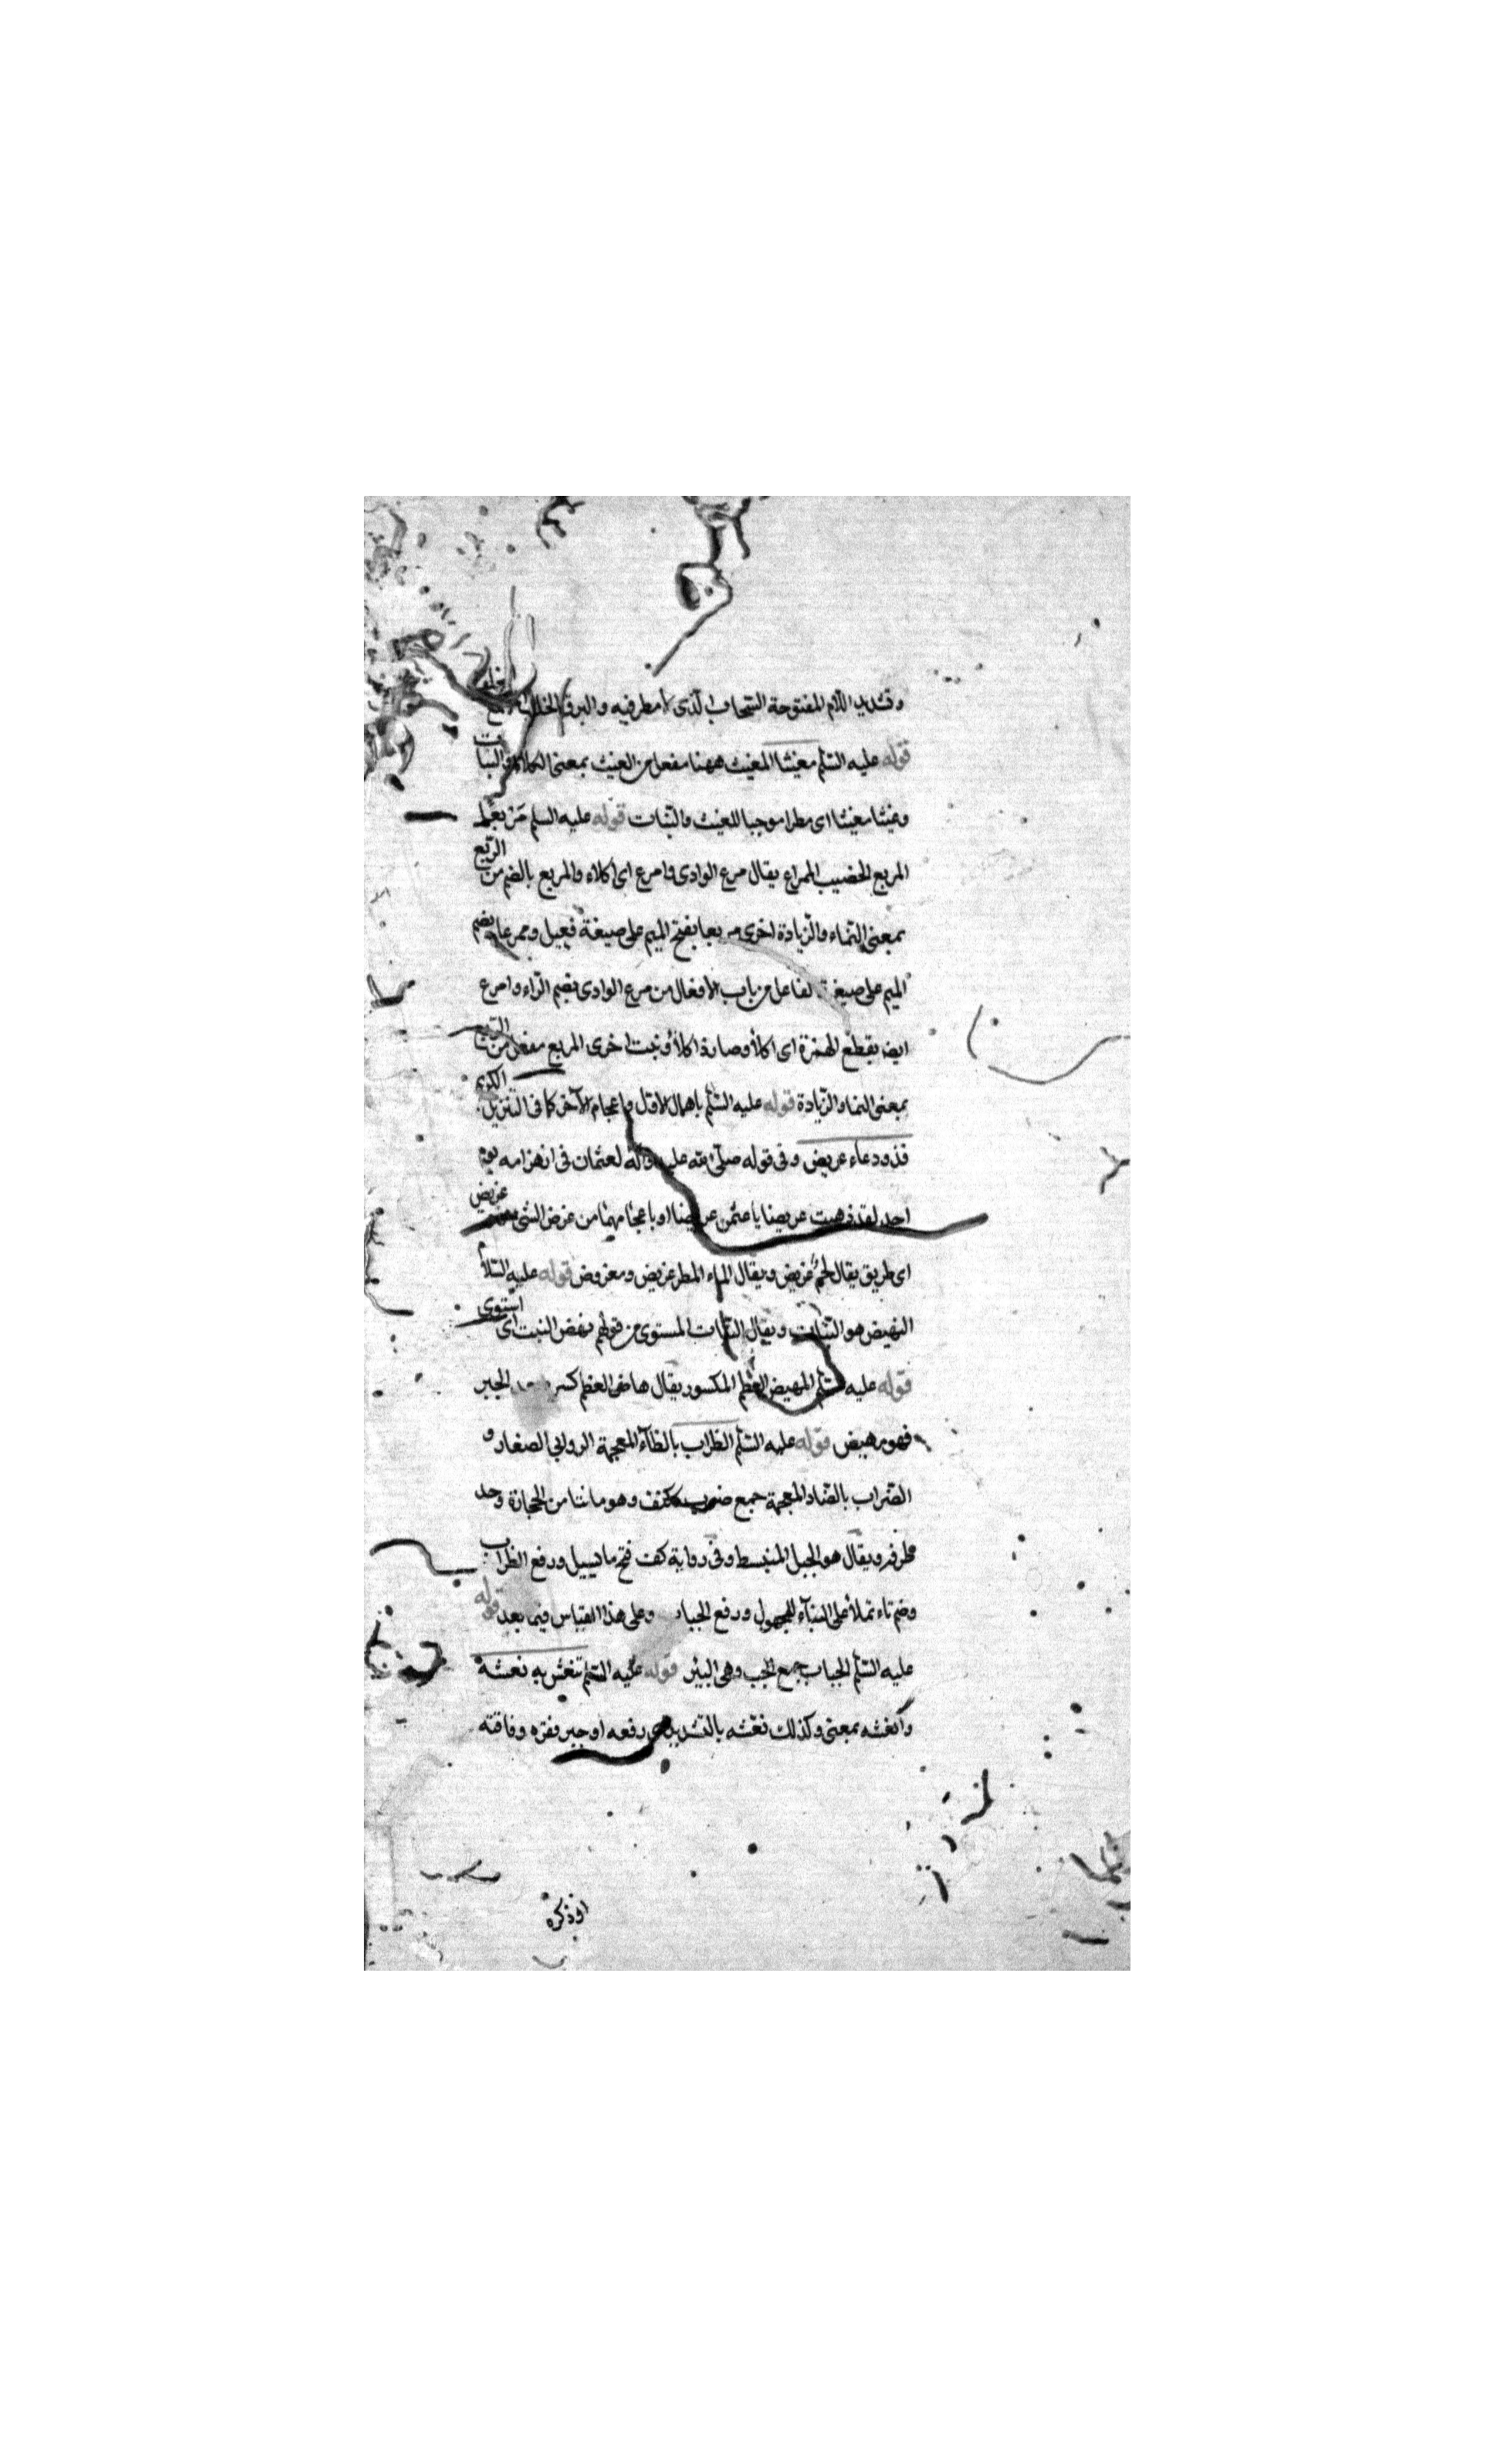 وتشديد اللام المفتوحة السحاب الذى لا مطر فيه والبرق الخلب
قوله عليه السلم مغيثا المغيث ههنا مفعل من الغيث بمعنى الكلاء والنبات
وغيثا مغيثا اى مطرا موجبا للغيث والنبات قوله عليه السلم
المريع الخصيب الممراع يقال مرع الوادى وامرع اى اكلاء والمربع بالضم من الربع
بمعنى النماء والزيادة اخرى مريعا بفتح الميم على صيغة فعيل وممرعا بضم
الميم على صيغة الفاعل من باب الافعال من مرع الوادى بضم الراء وامرع
ايضا بقطع الهمزة اى اكلأ وصار ذا كلأ ونبت اخرى المربع مفعل من الربع
بمعنى النما والزيادة قوله عليه السلم باهمال الاول واعجام الآخر كما فى التنزيل الكريم
فذو دعاء عريض وفى قوله صلى الله عليه وآله لعثمان فى انهزامه يوم
احد لقد ذهبت عريضا يا عثمن عريضا او باعجامهما من غرض الشئ غريض
اى طرى يقال لحم غريض ويقال لماء المطر غريض ومغروض قوله عليه السلام
النهيض هو النبات ويقال النبات المستوى من قولهم نهض النبت اى استوى
قوله عليه السلم المهيض العظم المكسور يقال هاض العظم كسر بعد الجبر
فهو مهيض قوله عليه السلم الظراب بالظاء المعجمة الروابي الصغار و
الضراب بالضاد المعجمة جمع ضرب ككتف وهو ما نتا من الحجارة وحد
طرفه ويقال هو الجبل المنبسط وفى رواية كف فتح ما يسيل ورفع الظراب
وضم تاء تملأ على البناء للمجهول ورفع الجباب وعلى هذا القياس فيما بعد قوله
عليه السلم الجباب جمع الجب وهى البئر قوله عليه السلم تنعش به نعشه
وانعشه بمعنى وكذلك نعشه بالتشديد اى رفعه او جبر فقره وفاقته
او ذكره